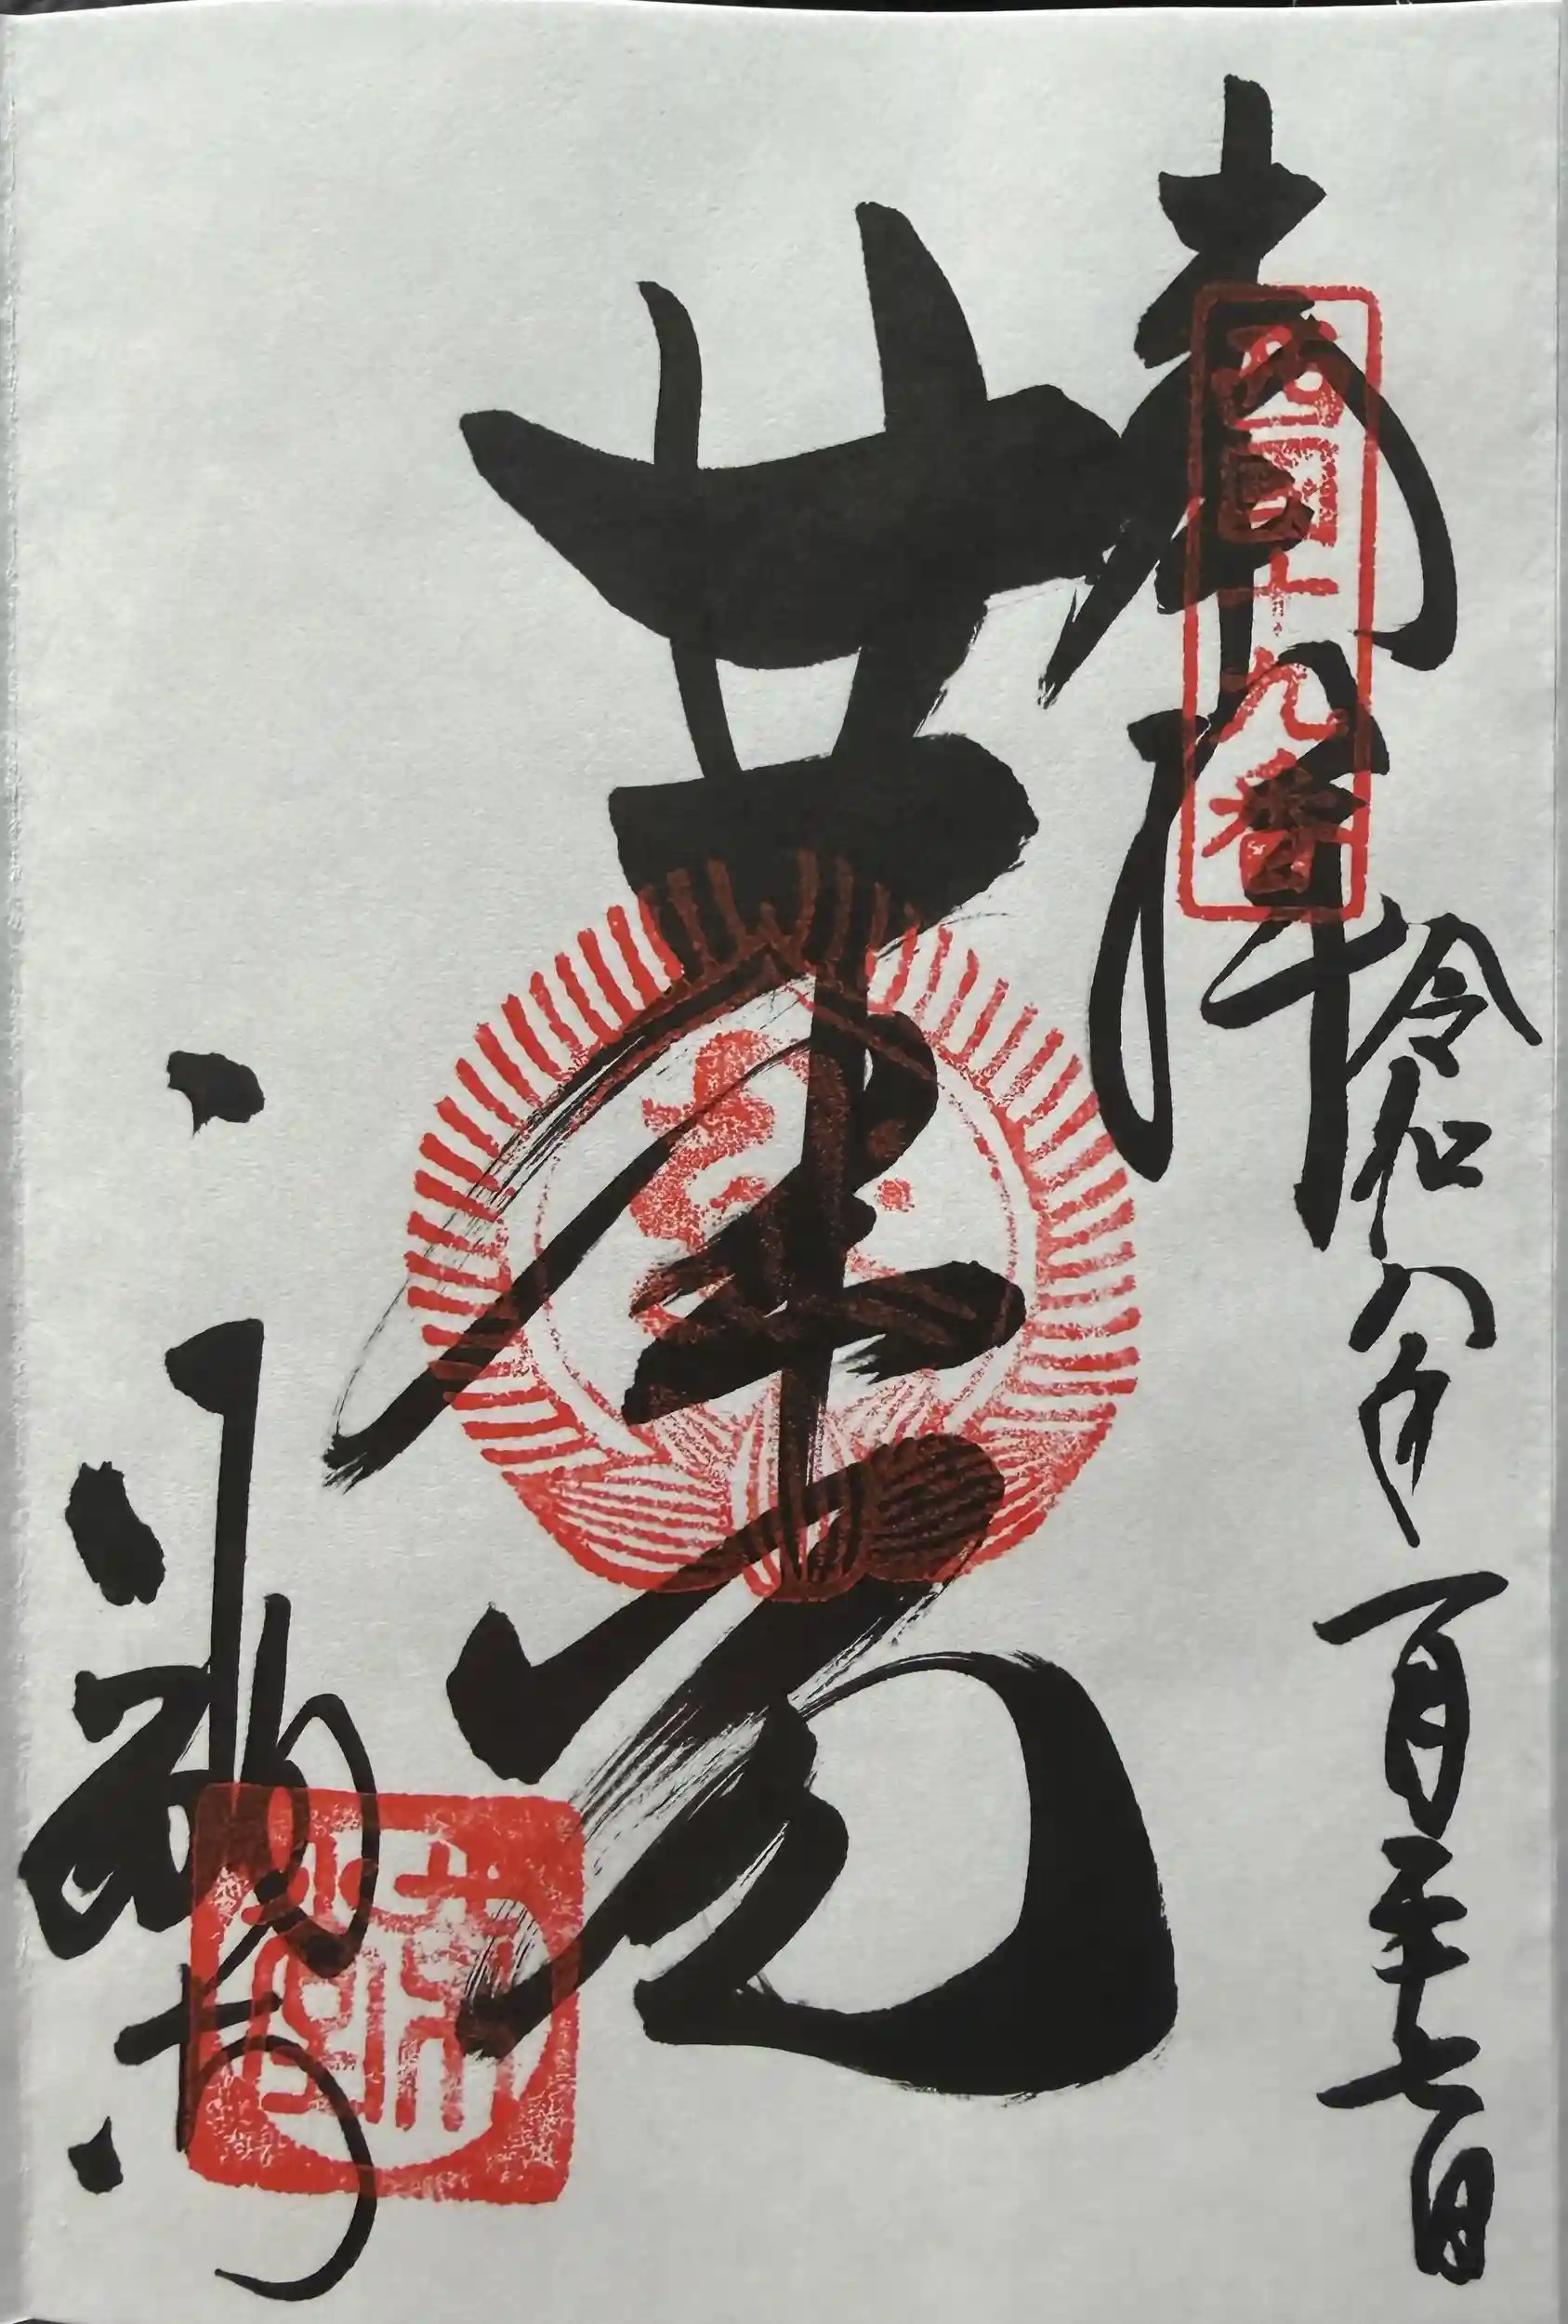 奉拝
西国十九番
令和八年一月二十七日
革堂
行願寺